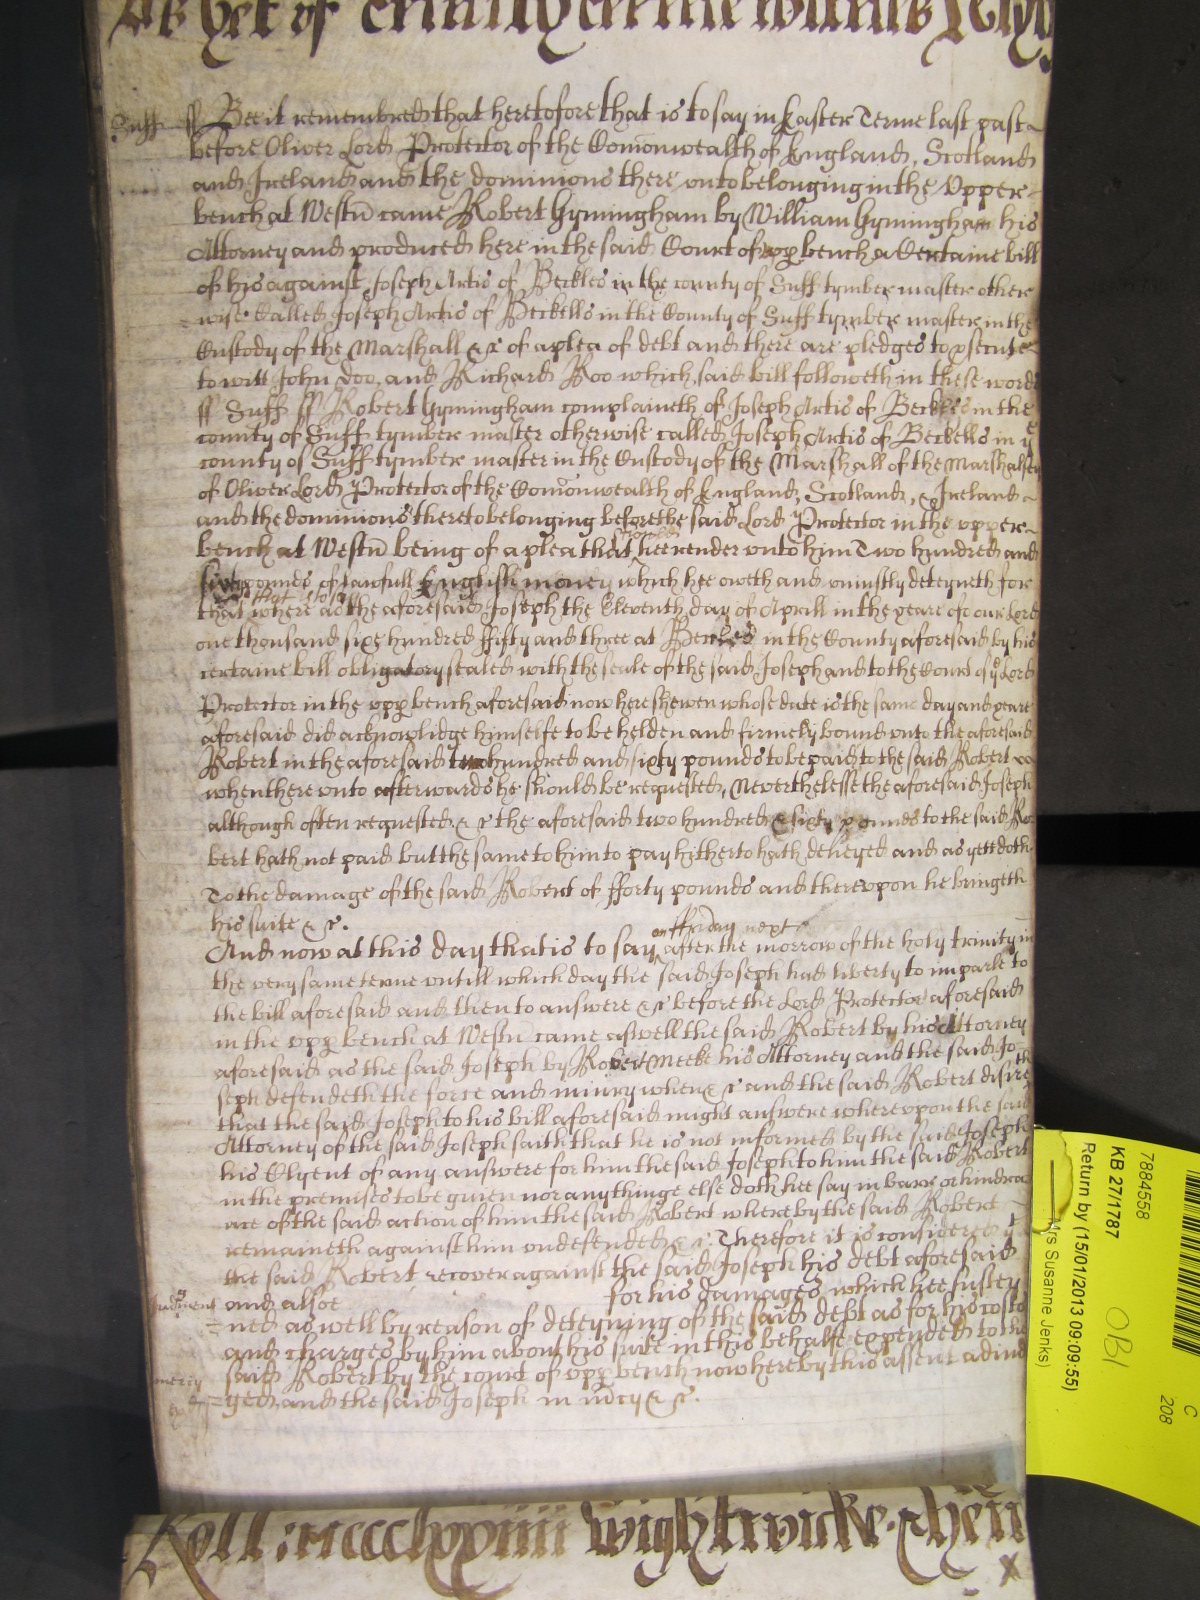 As yet of Trinity terme witnes
Suff ss Bee it remembred that heretofore that is to say in Easter Terme last past
before Oliver Lord Protector of the Comonwealth of England, Scotland
and Ireland and the dominions there unto belonging in the Upper
bench at Westm̄ came Robert Gymingham by William Gymingham his
Attorney and produced here in the said Court of upp bench a Certaine bill
of his against Joseph Artis of Beckles in the county of Suff tymber master other
wise Called Joseph Artis of Beckells in the County of Suff tymber master in the
Custody of the Marshall &c of a plea of debt and there are pledges to psecute
to witt John Doo, and Richard Roo which said bill followeth in these words
ss Suff ss Robert Gymingham complaineth of Joseph Artis of Beckles in the
county of Suff tymber master otherwise called Joseph Artis of Beckells in ye
county of Suff tymber master in the Custody of the Marshall of the Marshalsey
of Oliver Lord Protector of the Comonwealth of England, Scotland, & Ireland
and the dominions thereto belonging before the said Lord Protector in the upper
bench at Westm̄ being of a plea that hee render unto him Two hundred and
sixty pounds of lawfull English money which hee oweth and uniustly deteyneth for
that is to
that where as the aforesaid Joseph the Eleventh day of Aprill in the yeare of our Lord
one thousand sixe hundred ffifty and three at Beckles in the County aforesaid by his
certaine bill obligatory sealed with the seale of the said Joseph and to the Court of ye Lord
Protector in the upp bench aforesaid now here shewen whose date is the same day and yeare
aforesaid did acknowlidge himselfe to be helden and firmely bound unto the aforesaid
Robert in the aforesaid two hundred and sixty pounds to be paid to the said Robert
when there unto afterwards he should be requested, Neverthelesse the aforesaid Joseph
although often requested &c the aforesaid two hundred & sixty pounds to the said Ro
bert hath not paid but the same to him to pay hitherto hath denyed and as yett doth
To the damage of the said Robert of fforty pounds and thereupon he bringeth
his suite &c.
on ffriday next
And now at this day that is to say after the morrow of the holy trinity in
the very same terme untill which day the said Joseph had liberty to imparle to
the bill aforesaid and then to answere &c before the Lord Protector aforesaid
in the upp bench at Westm̄ came aswell the said Robert by his Attorney
aforesaid as the said Joseph by Robert Meeke his Attorney and the said Jo
seph defendeth the force and iniury when &c and the said Robert disireth
that the said Joseph to his bill aforesaid might answere whereupon the said
Attorney of the said Joseph saith that he is not informed by the said Joseph
his Clyent of any answere for him the said Joseph to him the said Robert
in the premises to be given nor any thinge else doth hee say in barr or hindra
nce of the said action of him the said Robert whereby the said Robert
remaineth against him undefended &c. Therefore it is considered yt
the said Robert recover against the said Joseph his debt aforesaid
Judgment and alsoe for his damages which hee sustey
ned as well by reason of deteyning of the said debt as for his costs
and charges by him about his suite in this behalfe expended to the
mercy said Robert by the court of upp bench now here by his assent adiud
ged, and the said Joseph in mcy &c.
Roll: mccclxxiiii Wightwicke
7884558
KB 27/1787
Return by (15/01/2013 09:09:55)
Mrs Susanne Jenks)
OBI
C
208